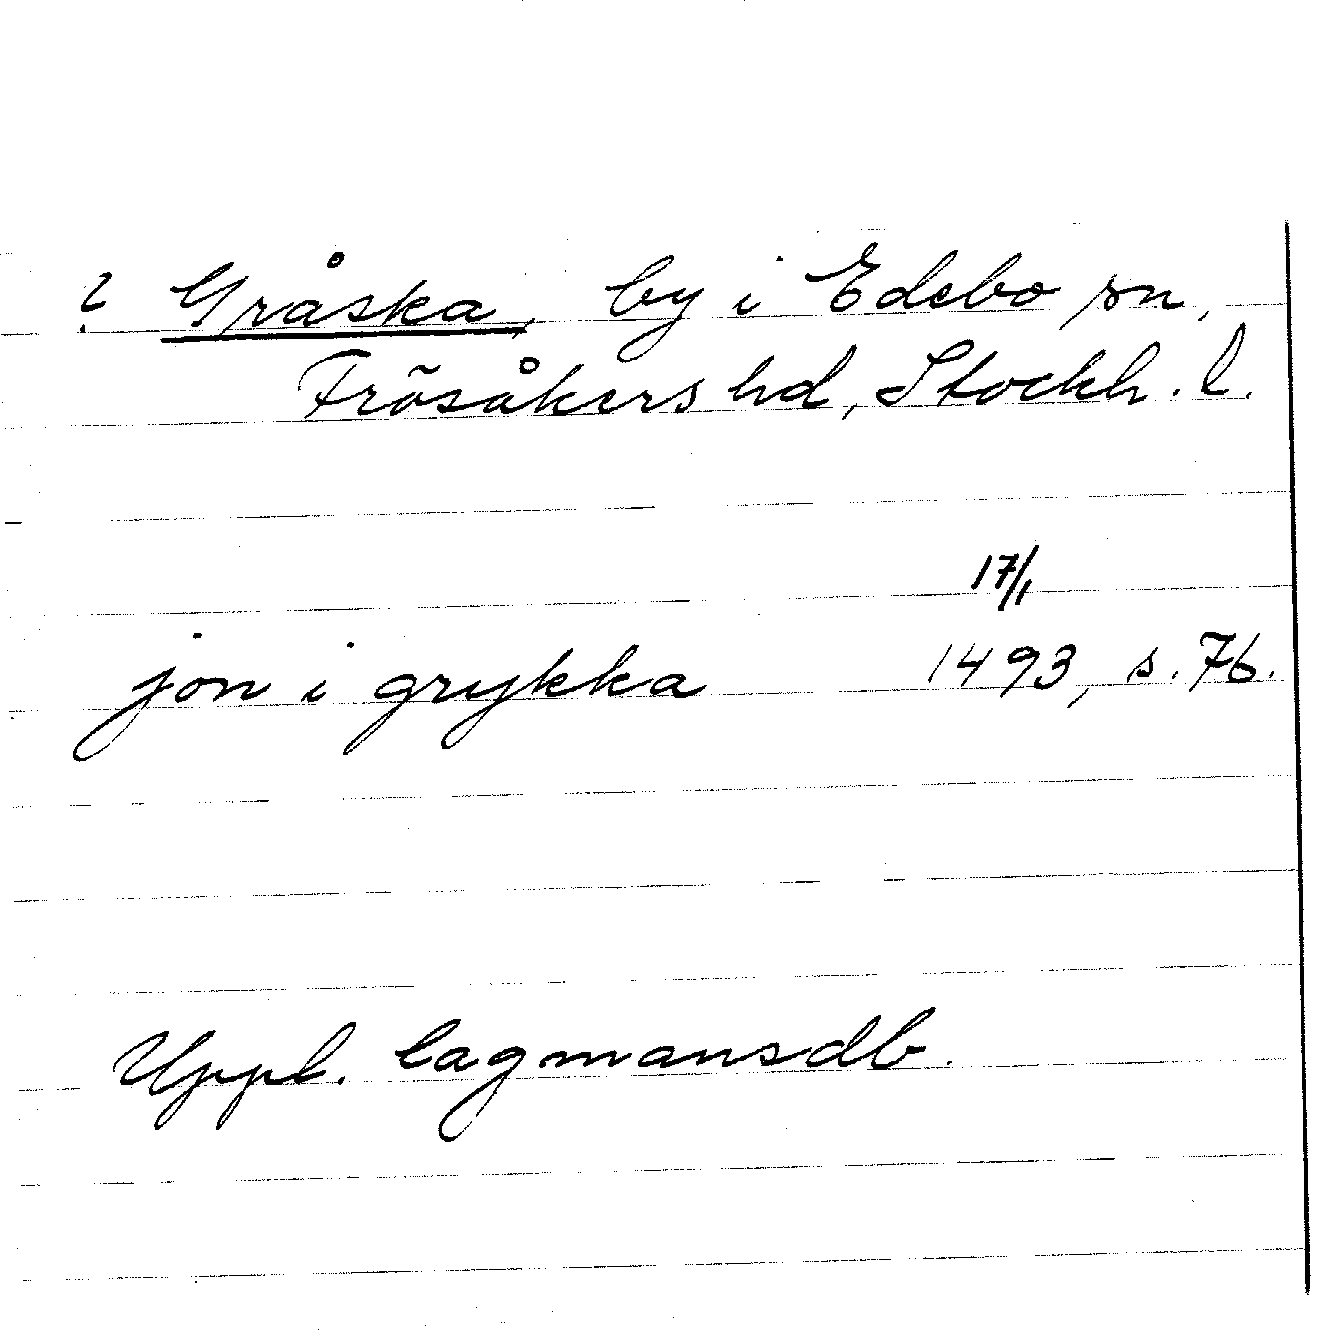 ? Gråska, by i Edebo sn,
Frösåkers hd, Stockh. l.
17/1
jon i grykka 1493, s. 76.
Uppl. lagmansdb.